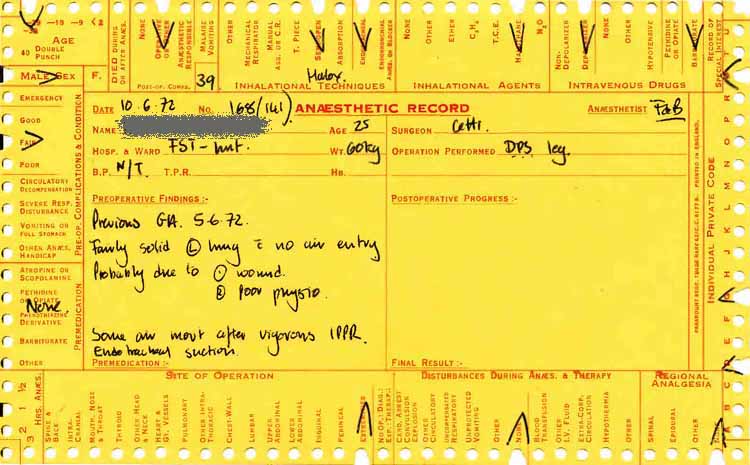 -29 -19 -9 <2
-39
AGE
40 DOUBLE PUNCH
MALE SEX F.
DIED DURING OR AFTER ANÆS.
NONE
OTHER
ANÆSTHETIC RESPONSIBLE
MALAISE VOMITING
OTHER
POST-OP. COMPS.
39.
MECHANICAL RESPIRATOR
MANUAL ASS. OR C.R.
T. PIECE
SEMI-OPEN
ABSORPTION
ENDOTRACHEAL
ENDOBRONCHIAL ANÆS. OR BLOCKER
Malox.
INHALATIONAL TECHNIQUES
NONE
OTHER
ETHER
C3H6
T.C.E.
HALOTHANE
N2O
INHALATIONAL AGENTS
NON-DEPOLARIZER
DEPOLARIZER
OTHER
HYPOTENSIVE
PETHIDINE OR OPIATE
BARBITURATE
INTRAVENOUS DRUGS
RECORD OF SPECIAL INTEREST
EMERGENCY
GOOD
FAIR
POOR
CIRCULATORY DECOMPENSATION
SEVERE RESP. DISTURBANCE
VOMITING OR FULL STOMACH
OTHER ANÆS. HANDICAP
PRE-OP. COMPLICATIONS & CONDITION
ATROPINE OR SCOPOLAMINE
PETHIDINE OR OPIATE
None.
PHENOTHIAZINE DERIVATIVE
BARBITURATE
OTHER
PREMEDICATION
DATE 10.6.72 No. 168/(141) ANÆSTHETIC RECORD ANÆSTHETIST FaB
NAME AGE 25 SURGEON Cetti.
HOSP. & WARD FST-hut. WT. 60kg OPERATION PERFORMED DPS leg.
B.P. N/T. T.P.R. HB.
PREOPERATIVE FINDINGS :-
Previous GA. 5.6.72.
Fairly solid (L) lung c̄ no air entry
Probably due to (1) wound.
(2) Poor physio.
Some air mov't after vigorous IPPR.
Endotracheal suction.
PREMEDICATION :-
POSTOPERATIVE PROGRESS :-
FINAL RESULT :-
PRINTED IN ENGLAND.
INDIVIDUAL PRIVATE CODE
3 2 1 ½
HRS. ANÆS.
SITE OF OPERATION
SPINE & BACK
INTRA-CRANIAL
MOUTH, NOSE & THROAT
THYROID
OTHER HEAD & NECK
HEART & GT. VESSELS
PULMONARY
OTHER INTRA-THORACIC
CHEST-WALL
LUMBAR
UPPER ABDOMINAL
LOWER ABDOMINAL
INGUINAL
PERINEAL
EXTREMITIES
NO OP. DIAG.: EXP.: THERAP.:
DISTURBANCES DURING ANÆS. & THERAPY
CARD. ARREST CONVULSION EXPLOSION
OTHER CIRCULATORY
UNCOMPENSATED RESPIRATORY
UNPROTECTED VOMITING
OTHER
NONE
BLOOD TRANSFUSION
OTHER I.V. FLUID
EXTRA-CORP. CIRCULATION
HYPOTHERMIA
OTHER
REGIONAL ANALGESIA
SPINAL
EPIDURAL
OTHER